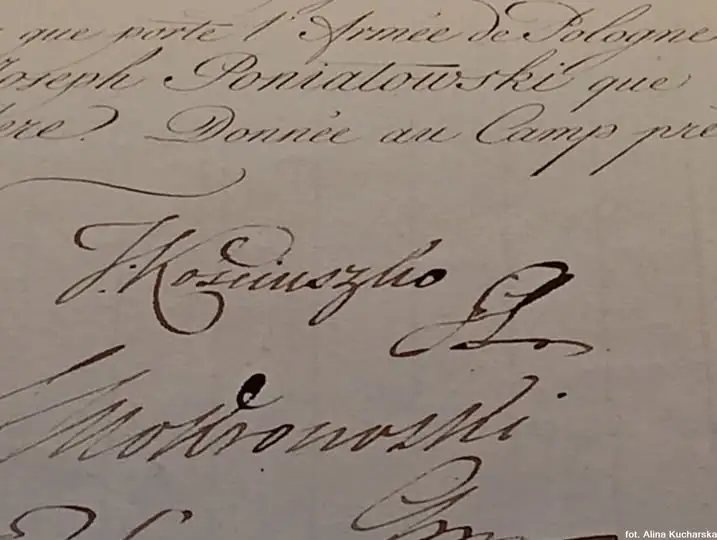 que porte l'Armée de Pologne
Joseph Poniatowski que
Donnée au Camp prè
T. Kościuszko GL
Mokronoski
fot. Alina Kucharska